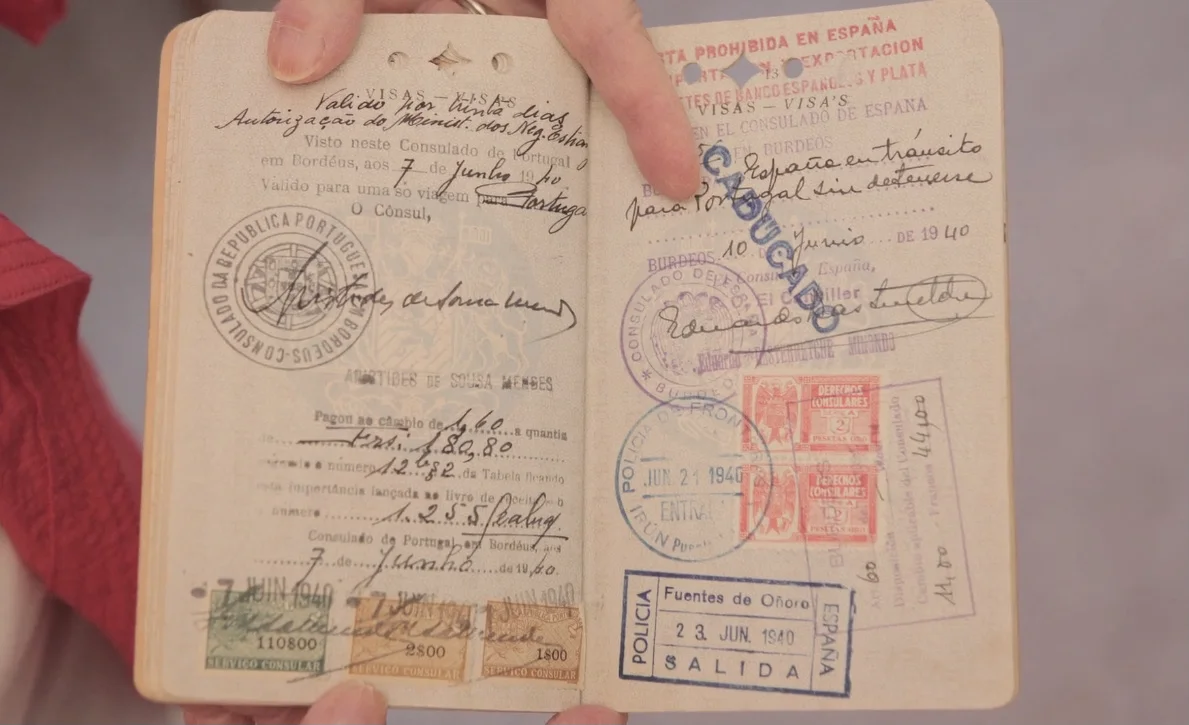 VISAS – VISA'S
Valido por trinta dias
Autorização do Minist. dos Neg. Estran
Visto neste Consulado de Portugal
em Bordéus, aos 7 de Junho 1940
Válido para uma só viagem para Portugal
O Cônsul,
CONSULADO DA REPUBLICA PORTUGUESA EM BORDEUS
Aristides de Sousa Mendes
ARISTIDES DE SOUSA MENDES
Pagou ao câmbio de 1,60 a quantia
de
o número
da Tabela ficando
importância lançada no livro de Receita
número 1.255
Consulado de Portugal em Bordéus, aos
7 de Junho de 1940
7 JUN 1940 7 JUN 1940 JUN 1940
110800 2800 1800
SERVIÇO CONSULAR SERVIÇO CONSULAR SERVIÇO CONSULAR
STA PROHIBIDA EN ESPAÑA
EXPORTACION
TES DE BANCO ESPAÑOLES Y PLATA
13
VISAS – VISA'S
EN EL CONSULADO DE ESPAÑA
EN BURDEOS
España en tránsito
para Portugal sin detenerse
CADUCADO
BURDEOS 10 Junio DE 1940
El Consul de España,
El Canciller
CONSULADO DE ESPAÑA
BURDEOS
Eduardo
MINONDO
DERECHOS
CONSULARES
2
PESETAS ORO
DERECHOS
CONSULARES
2
PESETAS ORO
POLICIA DE FRON
JUN. 21 1940
ENTRADA
IRÚN
Art 60
del Consulado
Francos 44,00
11,00
POLICIA
Fuentes de Oñoro
23 JUN. 1940
SALIDA
ESPAÑA